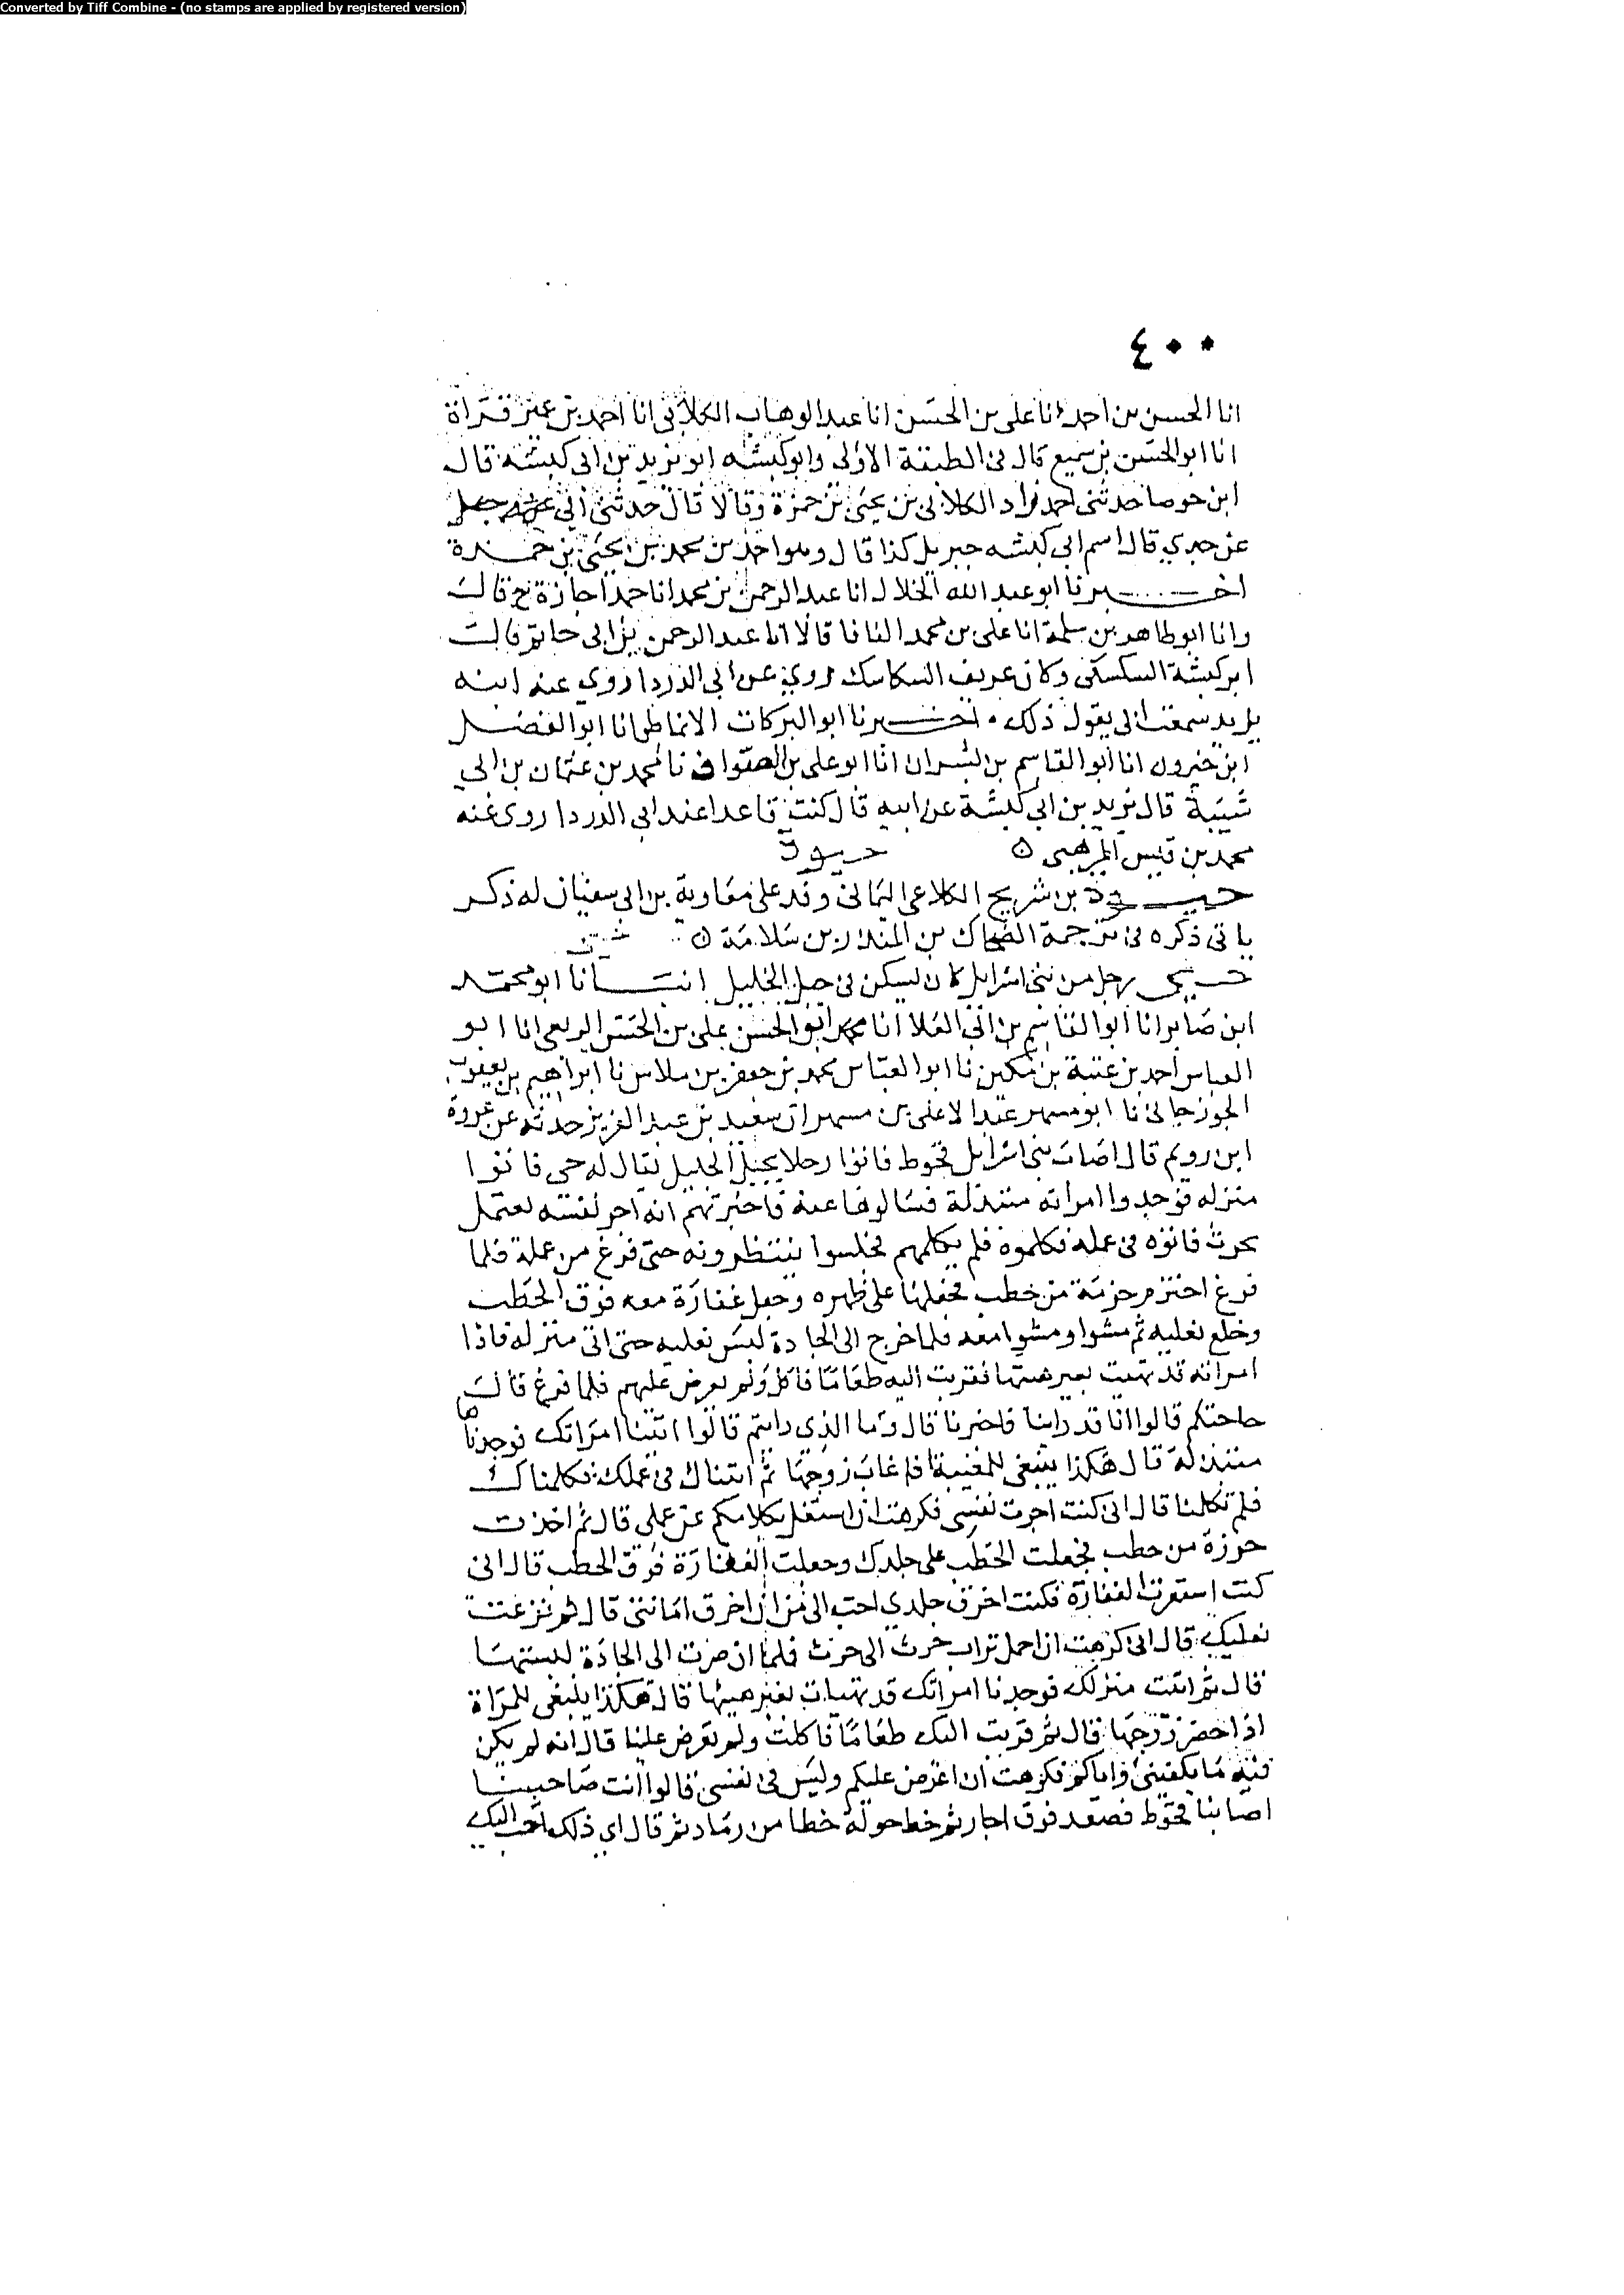 Converted by Tiff Combine - (no stamps are applied by registered version)
٤٠٠
انا الحسن بن احمد انا على بن الحسن انا عبد الوهاب الكلابى انا احمد بن عمير قراة
انا ابو الحسن بن سميع قال فى الطبقة الاولى وابو كبشه ابو يزيد بن ابى كبشة قال
ابن جوصا حدثنى احمد زاد الكلابى بن يحيى بن حمزة وقالا قال حدثنى ابى عن
عن جدي قال اسم ابى كبشه جبريل كذا قال وهو احمد بن محمد بن يحيى بن حمزة
اخبرنا ابو عبد الله الخلال انا عبد الرحمن بن محمد انا حمد اجازة ح قال
وانا ابو طاهر بن سلمة انا على بن محمد قالا انا عبد الرحمن بن ابى حاتم قال
ابو كبشة السكسكى وكان عريف السكاسك روي عن ابى الدردا روي عنه ابنه
يزيد سمعت ابى يقول ذلك . اخبرنا ابو البركات الانماطى انا ابو الفضل
ابن خيرون انا ابو القاسم بن بشران انا ابو على بن الصواف نا محمد بن عثمان بن ابي
شيبة قال يزيد بن ابى كبشة عن ابيه قال كنت قاعدا عند ابى الدردا روى عنه
محمد بن قيس المرهبى ه حيوة
حيوة بن شريح الكلاعى اليمانى وفد على معاوية بن ابى سفيان له ذكر
ياتى ذكره فى ترجمة الضحاك بن المنذر بن سلامة ه
حى رجل من بنى اسرايل كان يسكن فى جبل الجليل انبانا ابو محمد
ابن صابر انا ابو القاسم بن ابى العلا انا محمد ابو الحسن على بن الحسن الربعى انا ابو
العباس احمد بن عتبة بن مكين نا ابو العباس محمد بن جعفر بن ملاس نا ابراهيم بن يعقوب
الجوزجانى نا ابو مسهر عبد الاعلى بن مسهر ان سعيد بن عبد العزيز حدثه عن عروة
ابن رويم قال اصاب بنى اسرايل قحوط فاتوا رجلا بجبل الجليل يقال له حى فاتوا
منزله فوجدوا امراته متبذلة فسالوها عنه فاخبرتهم انه اجر نفسه يعمل
بحرث فاتوه فى عمله فكلموه فلم يكلمهم فجلسوا ينتظرونه حتى فرغ من عمله فلما
فرغ احتزم حزمة من حطب فجعلها على ظهره وجعل غفارة معه فوق الحطب
وخلع نعليه ثم مشوا ومشوا معه فلما خرج الى الجادة لبس نعليه حتى اتى منزله فاذا
امراته قد تهيت بغير هيتها فقربت اليه طعاما فاكل ولم يعرض عليهم فلما فرغ قال ما
حاجتكم قالوا انا قد راينا فاخبرنا قال وما الذى رايتم قالوا اتينا امراتك فوجدناها
متبذلة قال هكذا ينبغى للمغيبة اذا غاب زوجها ثم اتيناك فى عملك فكلمناك
فلم تكلمنا قال انى كنت اجرت نفسى فكرهت ان اشتغل بكلامكم عن عملى قال ثم اخذت
حزمة من حطب فجعلت الحطب على جلدك وجعلت الغفارة فوق الحطب قال انى
كنت استعرت الغفارة فكنت اخرق جلدي احب الى من ان اخرق امانتى قال ثم نزعت
نعليك قال انى كرهت ان احمل تراب حرث الى حرث فلما ان صرت الى الجادة لبستهما
قال ثم اتيت منزلك فوجدنا امراتك قد تهيات بغير هيئتها قال هكذا ينبغى للمراة
اذا حضر زوجها قال ثم قربت اليك طعاما فاكلت ولم تعرض علينا قال انه لم يكن
فيه ما يكفينى واياكم فكرهت ان اعرض عليكم وليس فى نفسى قالوا انت صاحبنا
اصابنا قحوط فصعد فوق اجار ثم خط حوله خطا من رماد ثم قال اي ذلك احب اليك